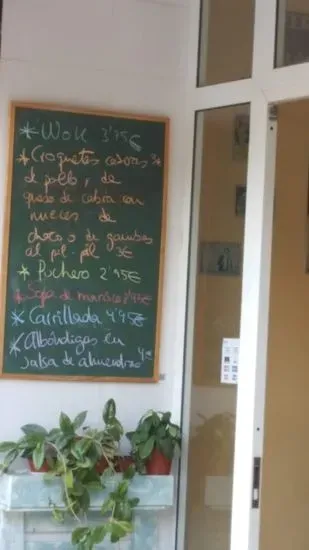 * Wok 3'95€
* Croquetas caseras 3€
de pollo, de
queso de cabra con
nueces de
choco o de gambas
al pil-pil 3€
* Puchero 2'95€
* Sopa de marisco 2'95€
* Carrillada 4'95€
* Albóndigas en
salsa de almendras 4€